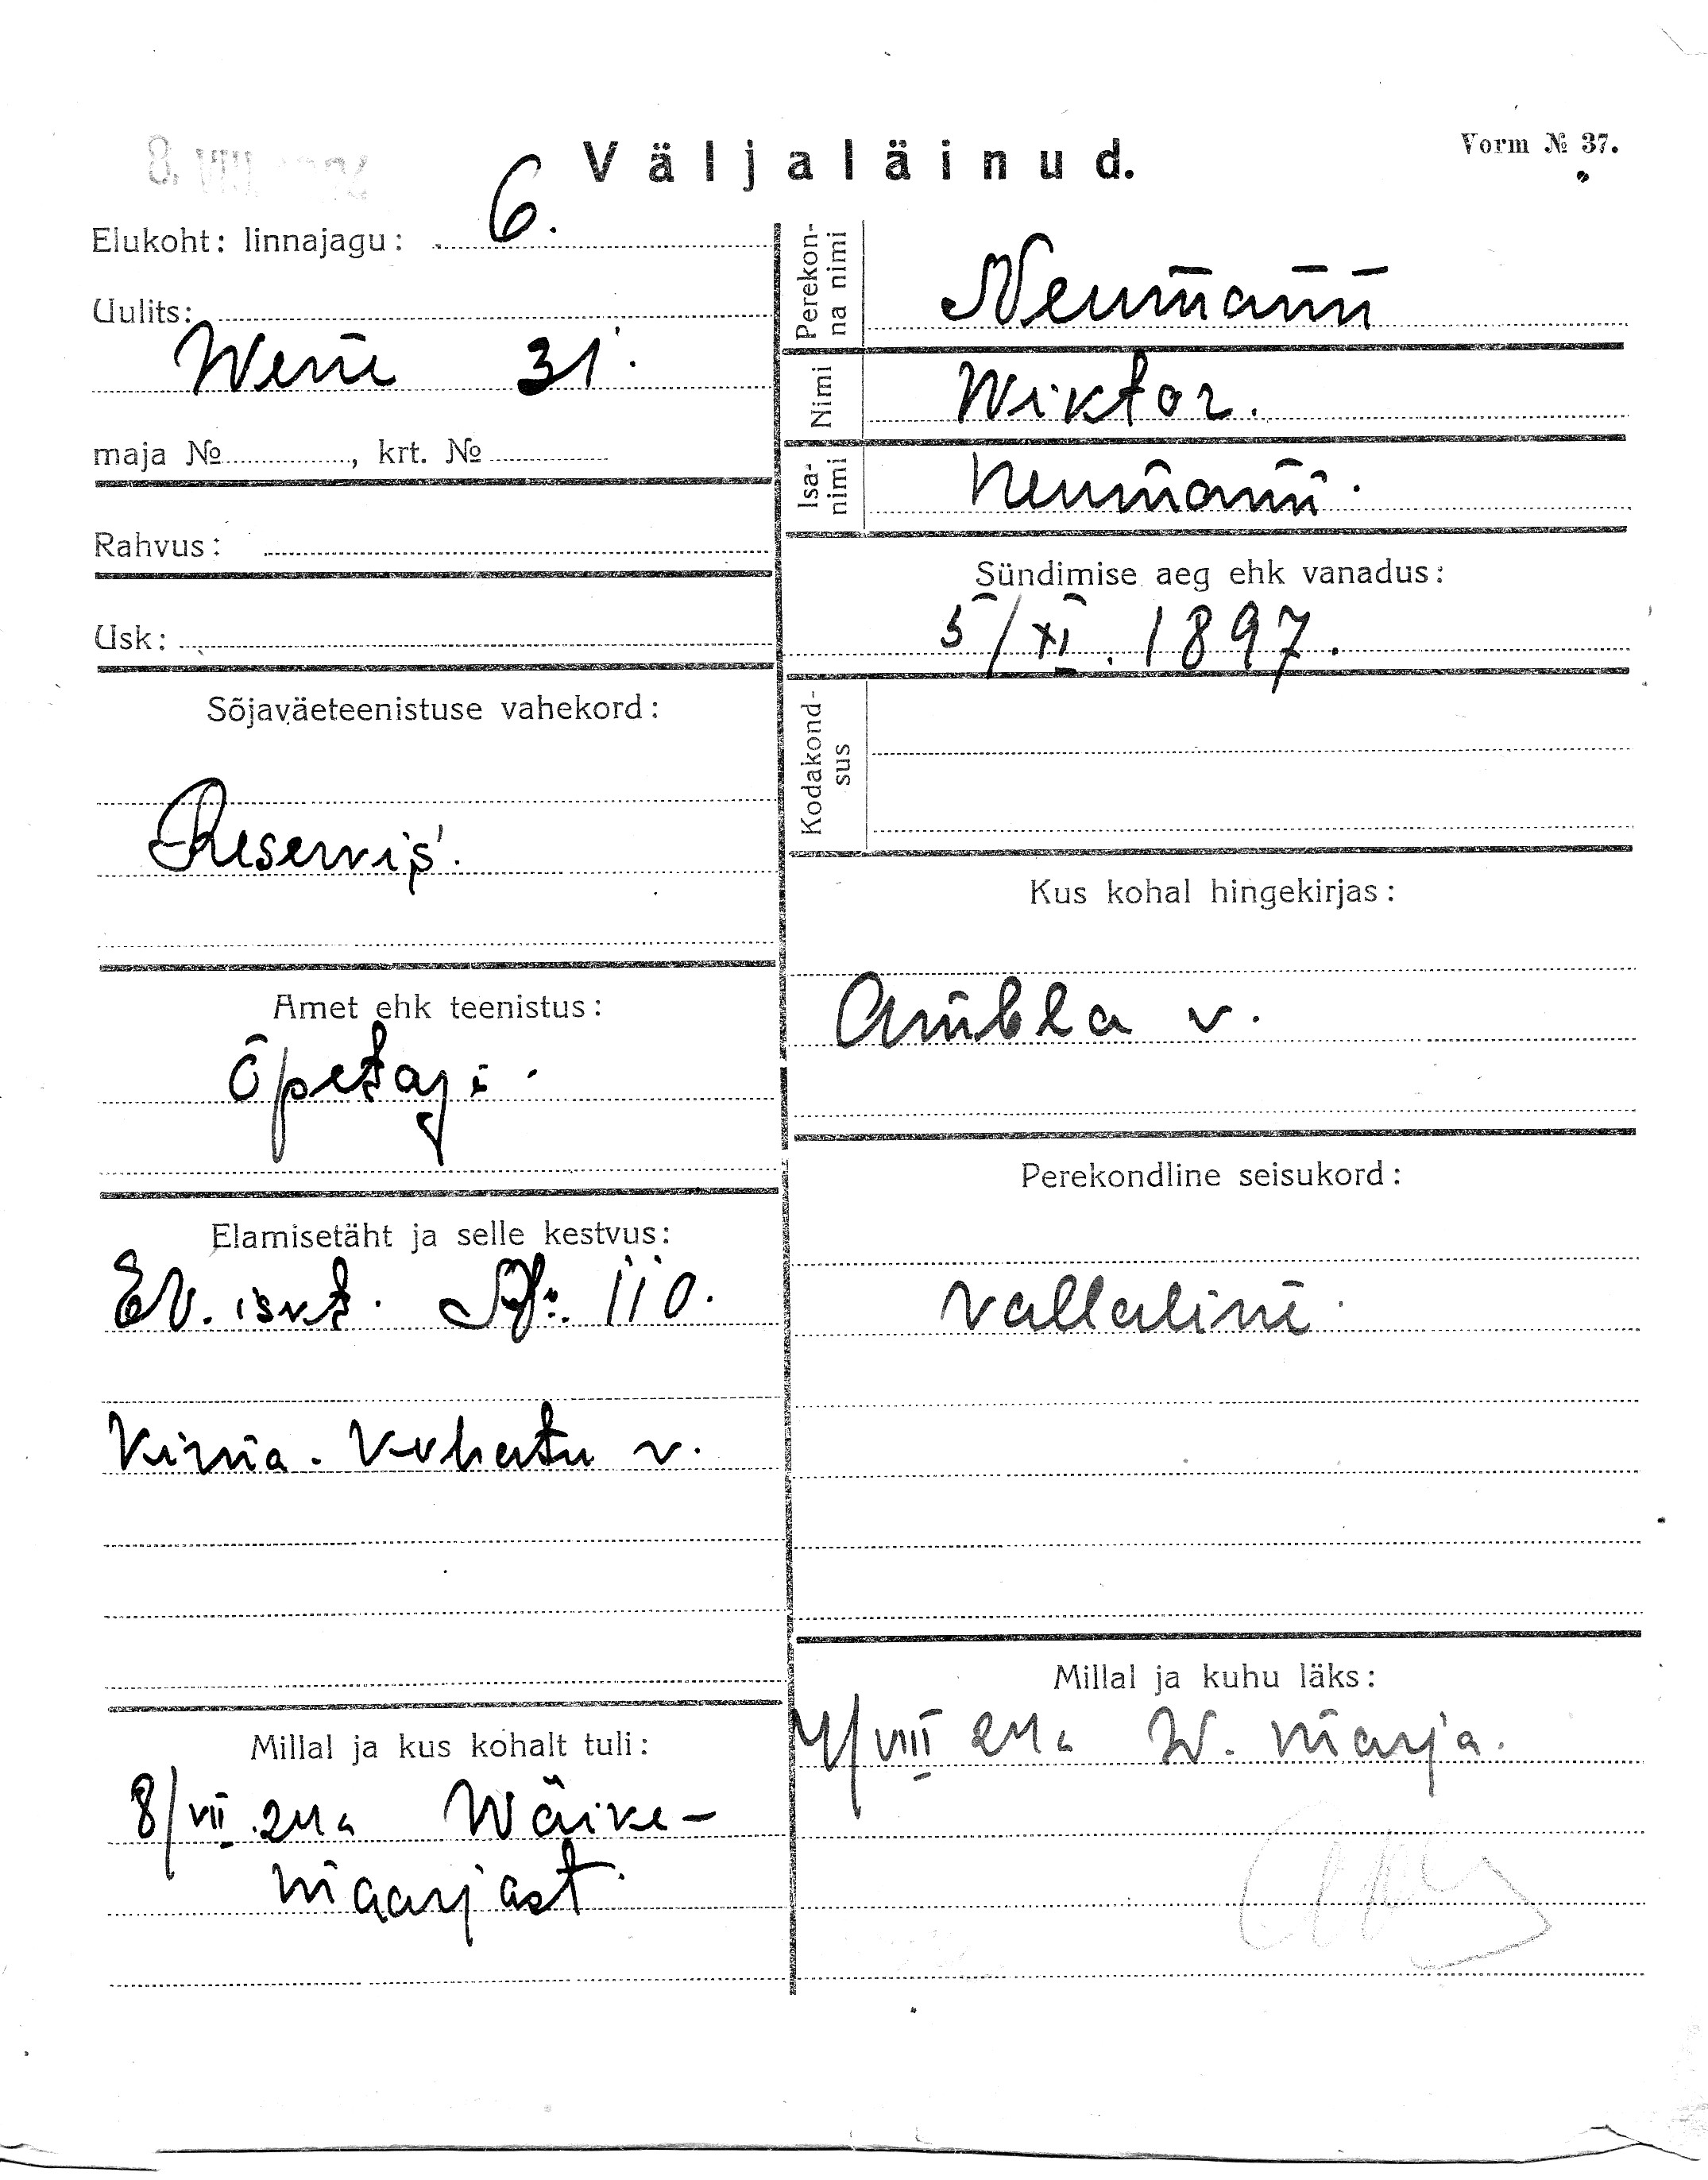 Väljaläinud.
Vorm № 37.
8. VIII
Elukoht: linnajagu: 6.
Uulits:
Wene 31.
maja № , krt. №
Rahvus:
Usk:
Sõjaväeteenistuse vahekord:
Reservis.
Amet ehk teenistus:
Õpetaja.
Elamisetäht ja selle kestvus:
Ev. isvt. № 110.
Kirna-Kohatu v.
Millal ja kus kohalt tuli:
8/VII.24 a Wäike-
Maarjast.
Perekon-
na nimi
Neumann
Nimi
Wiktor.
Isa-
nimi
Neumann.
Sündimise aeg ehk vanadus:
5/XI.1897.
Kodakond-
sus
Kus kohal hingekirjas:
Ambla v.
Perekondline seisukord:
Vallaline.
Millal ja kuhu läks:
4/VIII 24 a W. Marja.